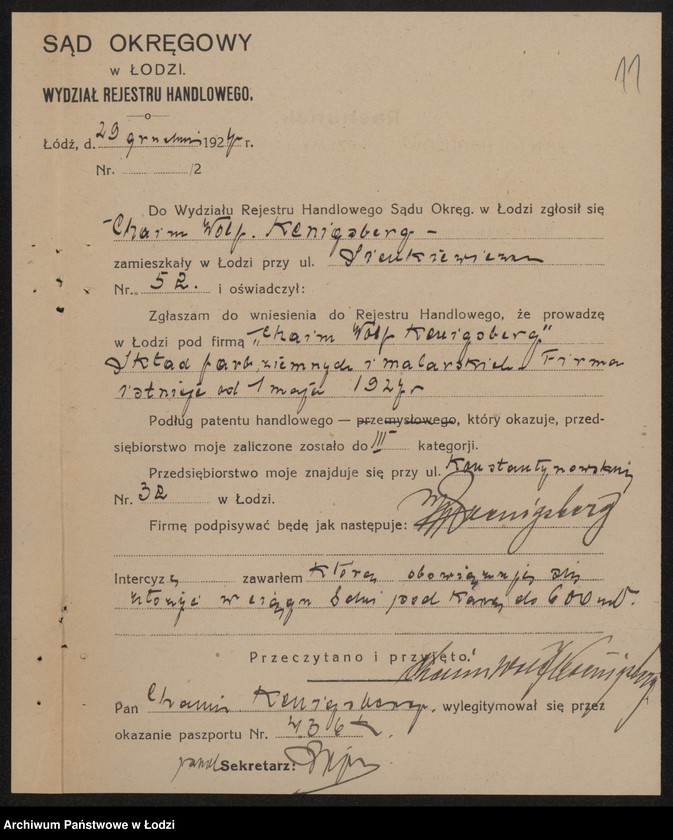 SĄD OKRĘGOWY
w ŁODZI.
WYDZIAŁ REJESTRU HANDLOWEGO.
11
Łódź, d. 29 grudnia 1927 r.
Nr. /2
Do Wydziału Rejestru Handlowego Sądu Okręg. w Łodzi zgłosił się
Chaim Wolf. Kenigsberg –
zamieszkały w Łodzi przy ul. Sienkiewicza
Nr. 52. i oświadczył:
Zgłaszam do wniesienia do Rejestru Handlowego, że prowadzę
w Łodzi pod firmą „Chaim Wolf Kenigsberg"
Skład farb ziemnych i malarskich. Firma
istnieje od 1 maja 1927 r
Podług patentu handlowego — przemysłowego, który okazuje, przed-
siębiorstwo moje zaliczone zostało do III kategorji.
Przedsiębiorstwo moje znajduje się przy ul. Konstantynowskiej
Nr. 32 w Łodzi.
Firmę podpisywać będę jak następuje: Koenigsberg
Intercyzę zawarłem którą obowiązuję się
złożyć w ciągu dni pod karą do 600 zł.
Przeczytano i przyjęto.
Chaim Wolf Koenigsberg
Pan Chaim Kenigsberg, wylegitymował się przez
okazanie paszportu Nr.
Sekretarz:
Archiwum Państwowe w Łodzi